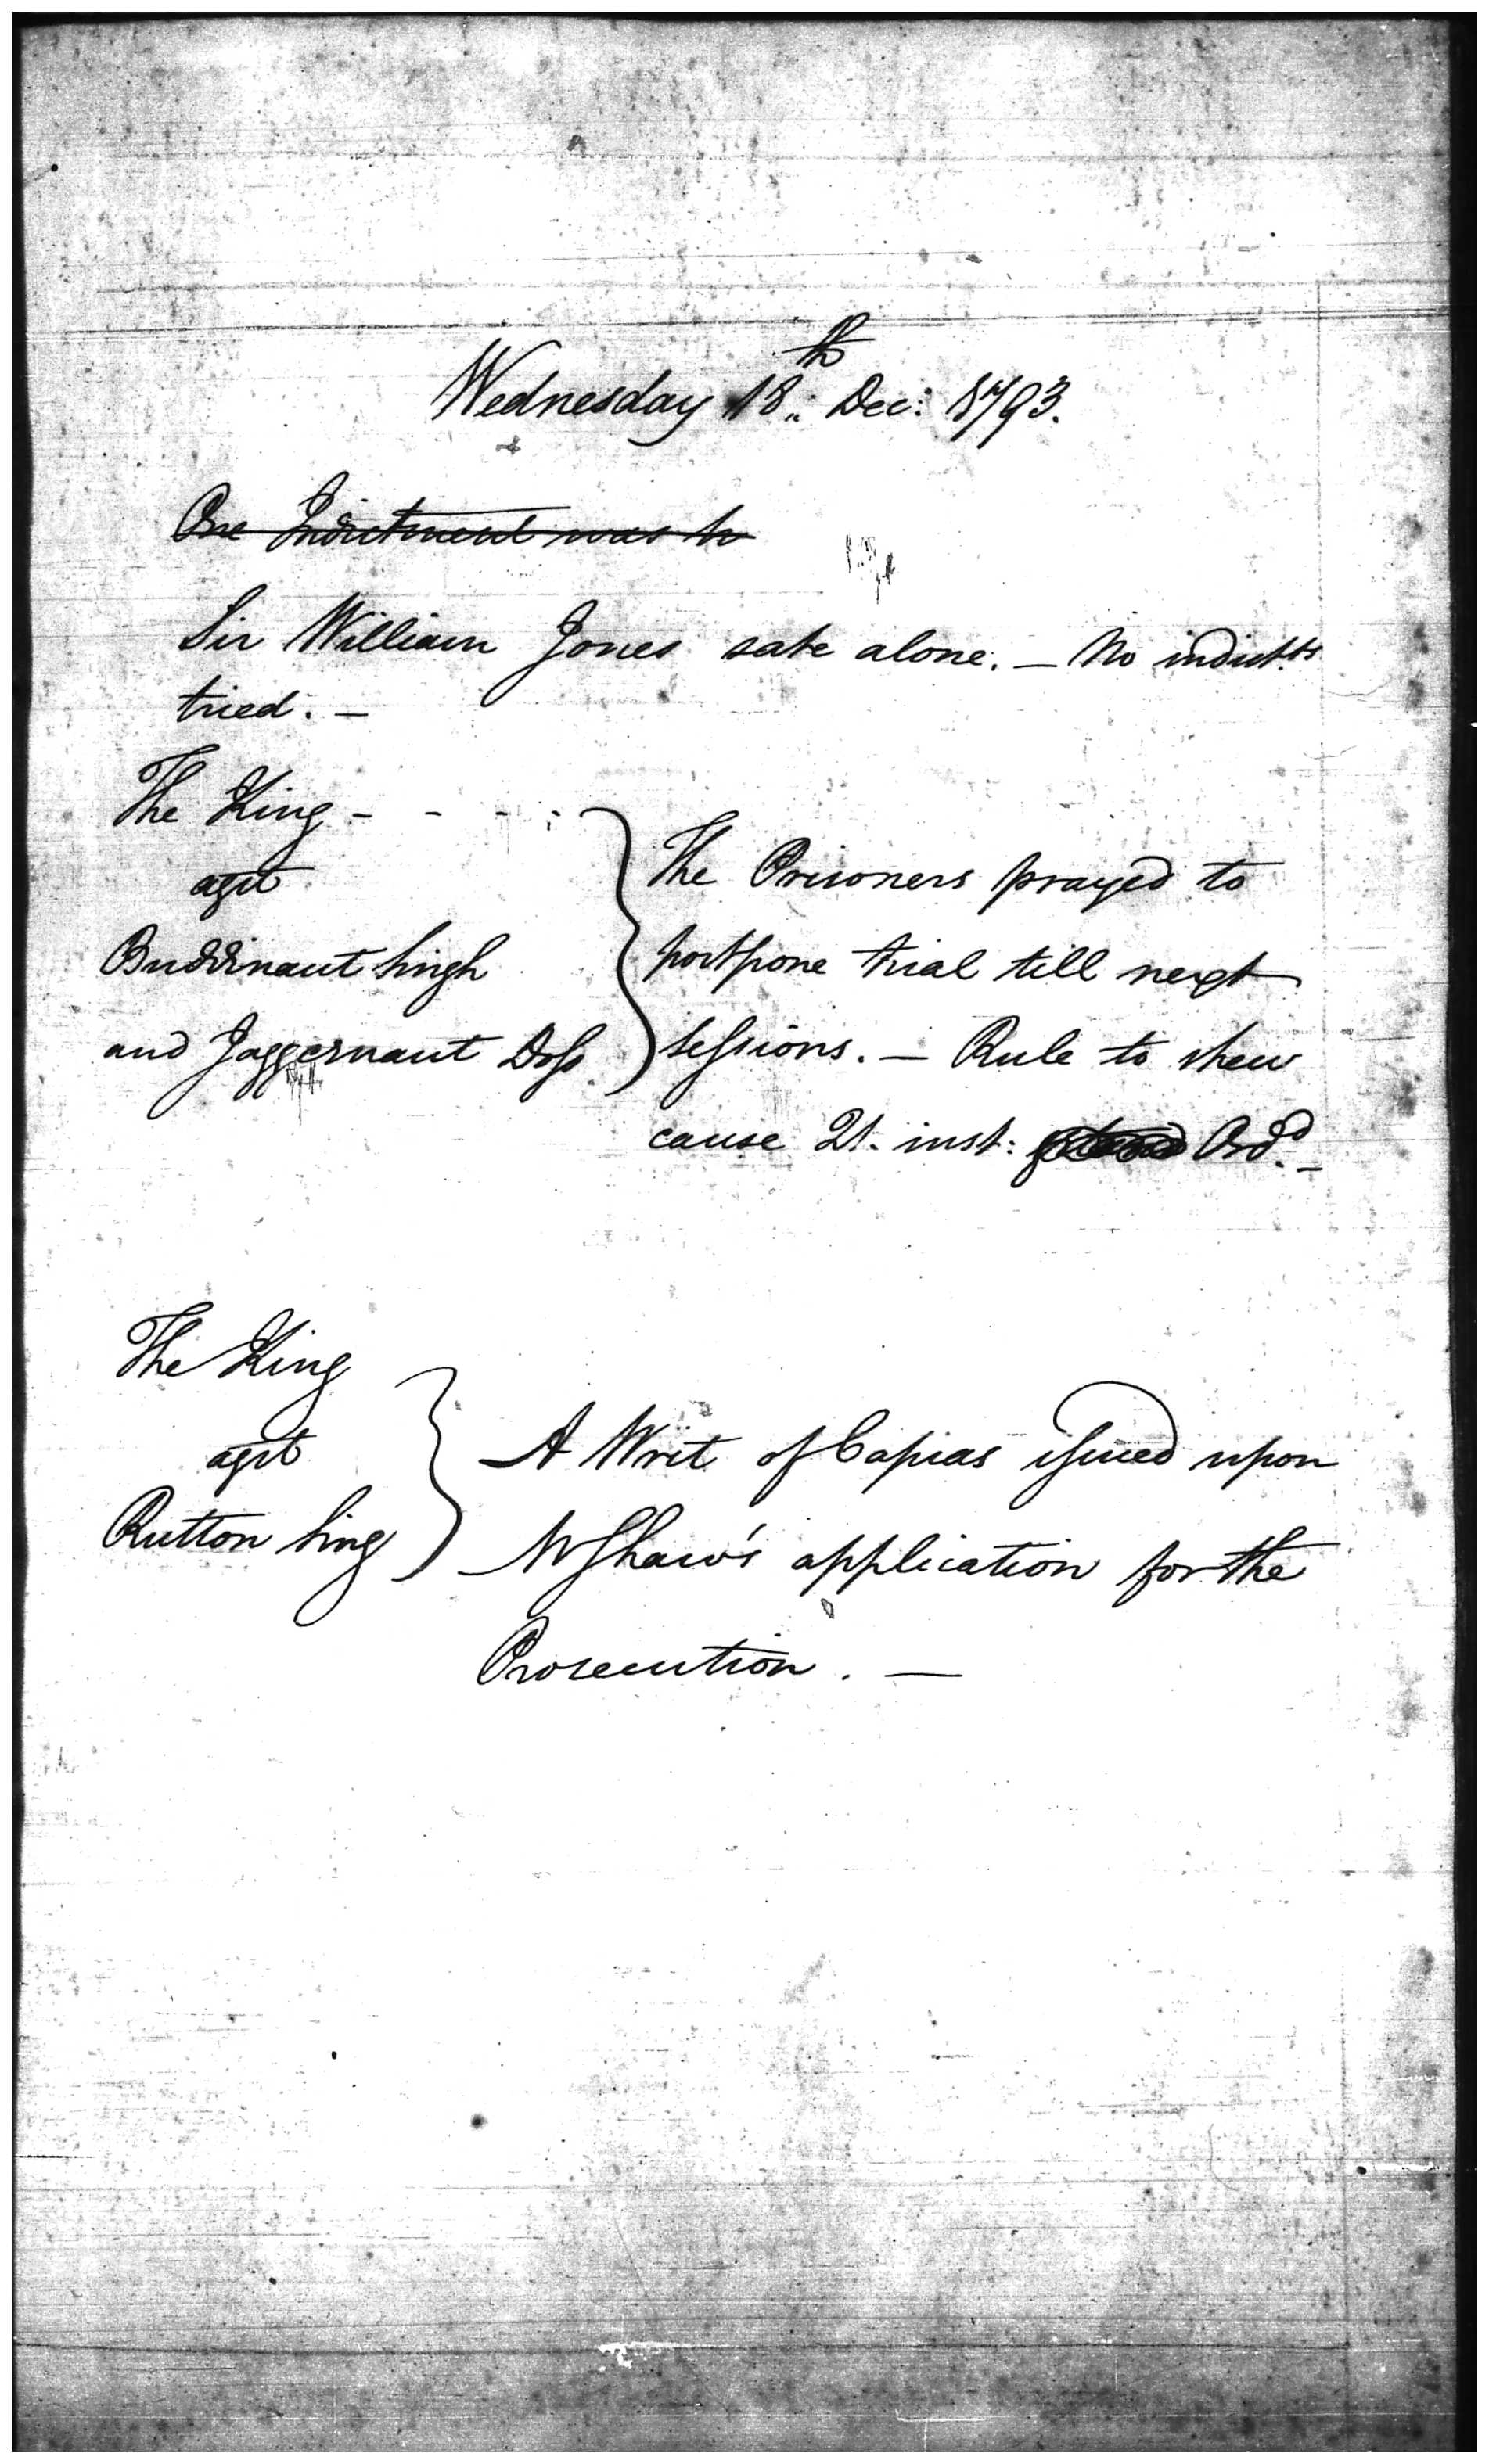 Wednesday 18th Dec: 1793.
One Indictment was tr
Sir William Jones sate alone. — No indictts
tried. —
The King - - - -
agst
Buddinaut Singh
and Jaggernaut Doss
The Prisoners prayed to
postpone trial till next
sessions. — Rule to shew
cause 21. inst: Ord. —
The King
agst
Rutton Sing
A Writ of Capias issued upon
Mr Shaw's application for the
Prosecution. —